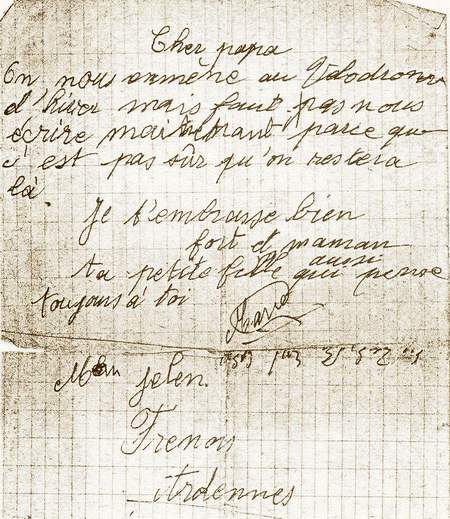 Cher papa
On nous emmène au Vélodrome
d'hiver mais faut pas nous
écrire maintenant parce que
c'est pas sûr qu'on restera
là.
Je t'embrasse bien
fort et maman
aussi
ta petite fille qui pense
toujours à toi
Marie
Jelen.
Frenois
Ardennes